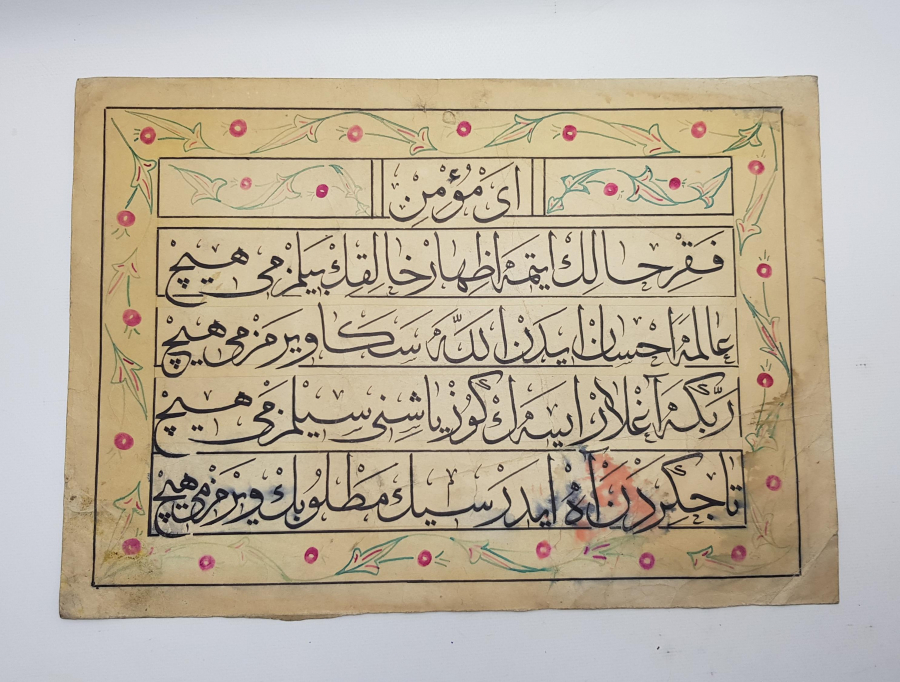 اى مؤمن
فقر حالك ايتمه اظهار خالقك بيلمزمى هيچ
عالمه احسان ايدن الله سكا ويرمزمى هيچ
ربّكه آغلار ايسه ك گوز ياشنى سيلمزمى هيچ
تا جگردن آه ايدرسيك مطلوبك ويرمزمى هيچ